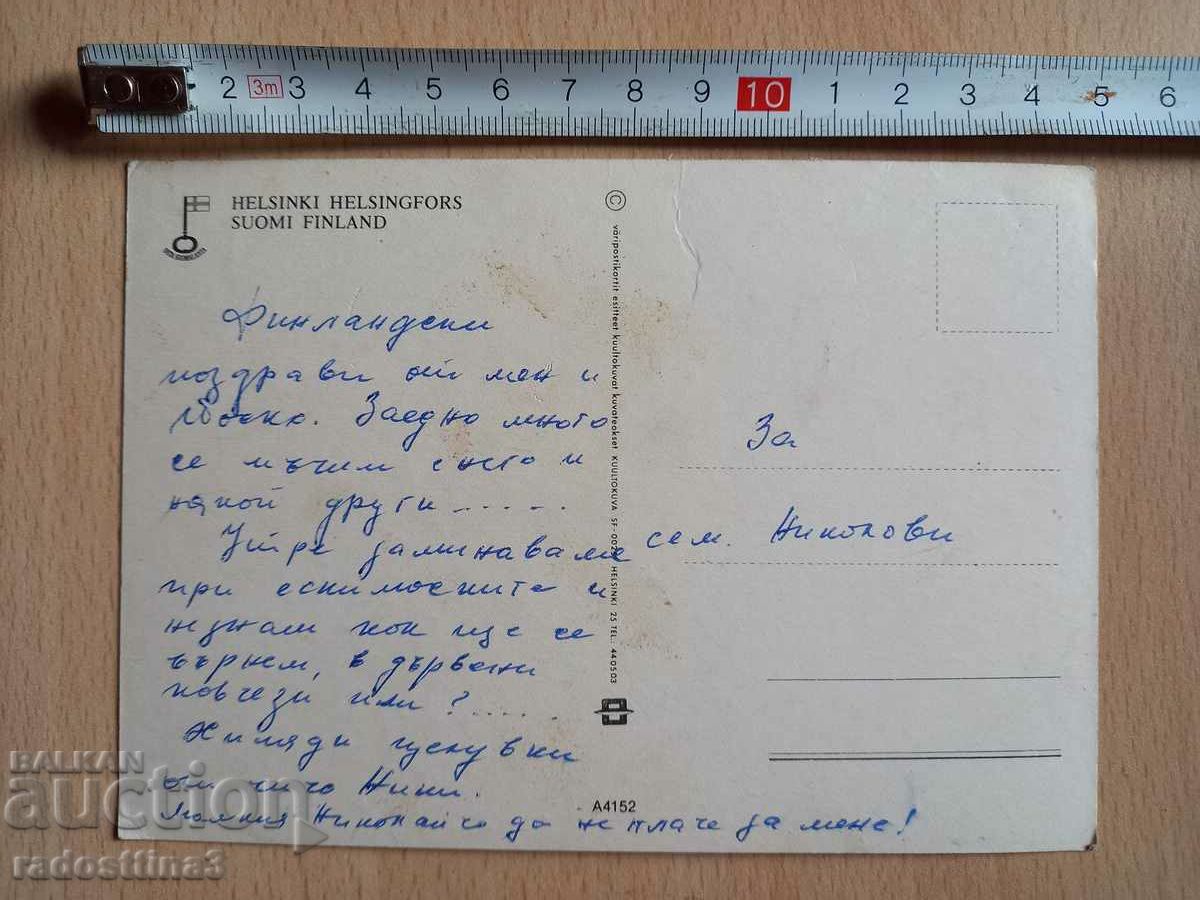 2 3m 3 4 5 6 7 8 9 10 1 2 3 4 5 6
HELSINKI HELSINGFORS
SUOMI FINLAND
©
väripostikortit esitteet kuultokuvat kuvateokset KUULTOKUVA SF-00250 HELSINKI 25 TEL. 440503
Финландски
поздрави от мен и
Заедно много
се мъчим и
някой други .....
Утре заминаваме
при ескимоските и
незнам как ще се
върнем, в дървени
ковчези или? .....
Хиляди целувки
от чичо Ники.
Малкия Николайчо да не плаче за мене!
За
сем. Николови
A4152
BALKAN
auction
radosttina3